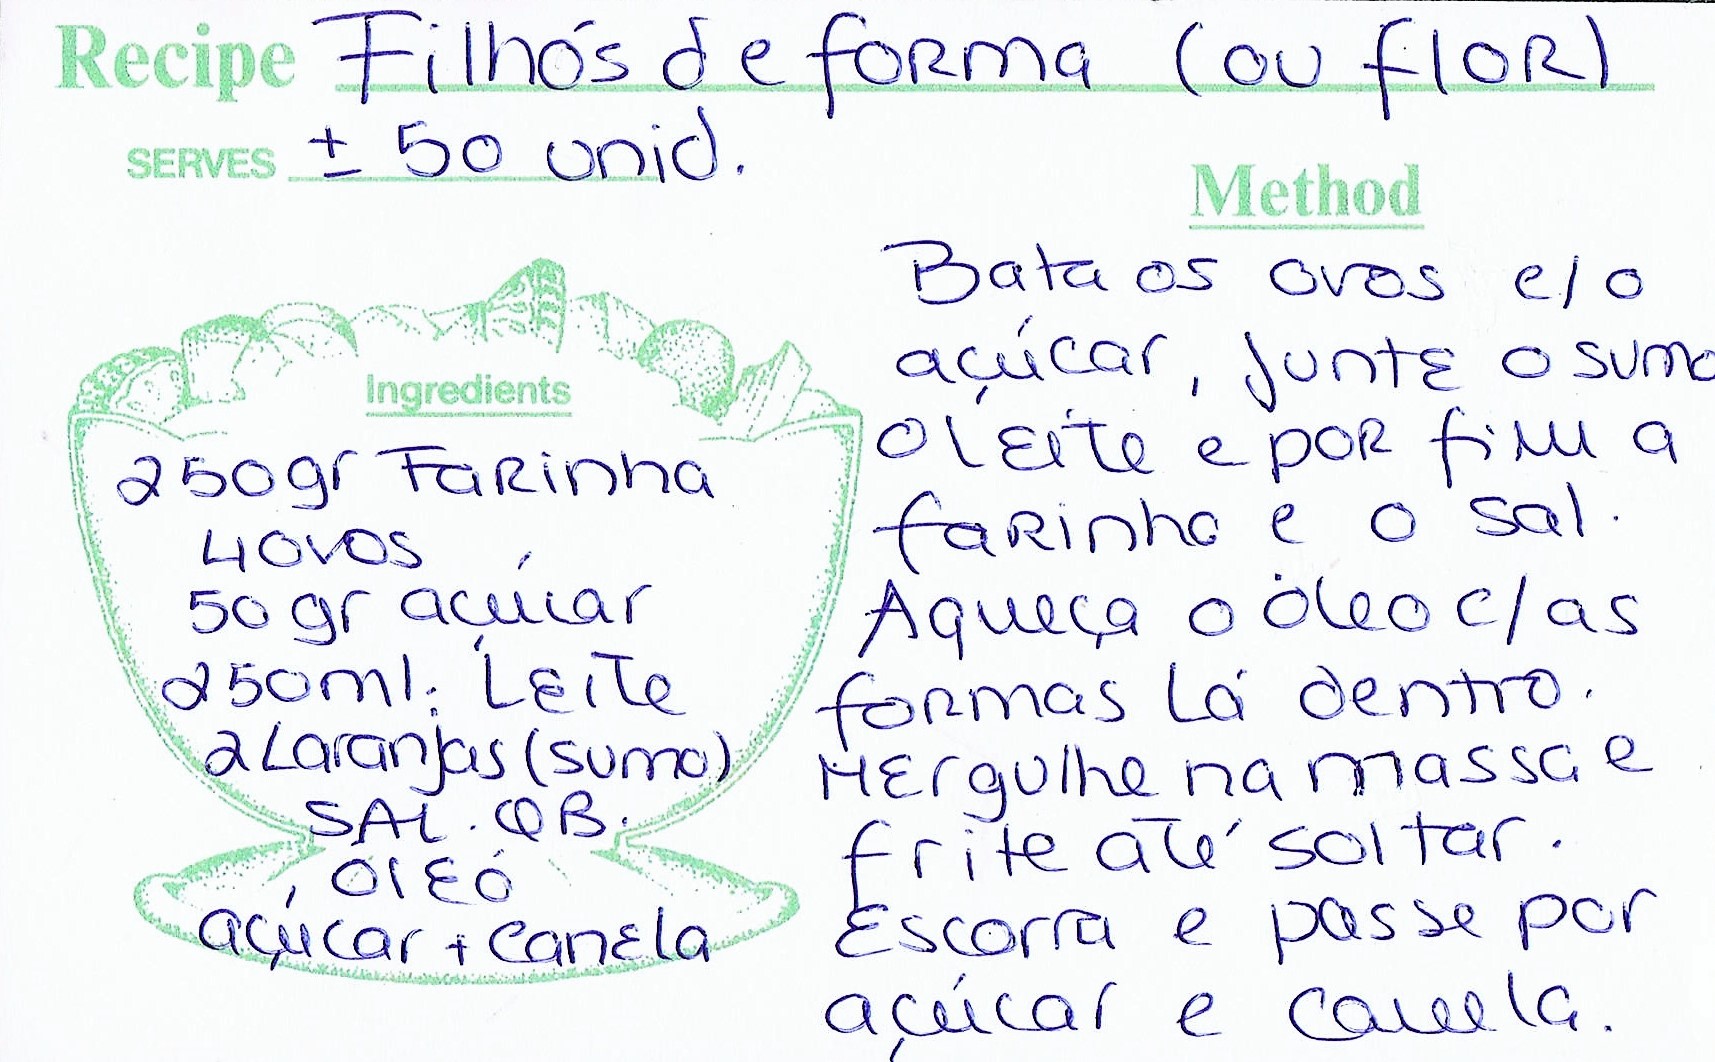 Recipe Filhós de forma (ou flor)
SERVES ± 50 unid.
Ingredients
250gr Farinha
4 ovos
50 gr açúcar
250ml. Leite
2 Laranjas (sumo)
SAL. QB.
Óleo
açúcar + canela
Method
Bata os ovos c/o
açúcar, junte o sumo
o leite e por fim a
farinha e o sal.
Aqueça o óleo c/ as
formas lá dentro.
Mergulhe na massa e
frite até soltar.
Escorra e passe por
açúcar e canela.